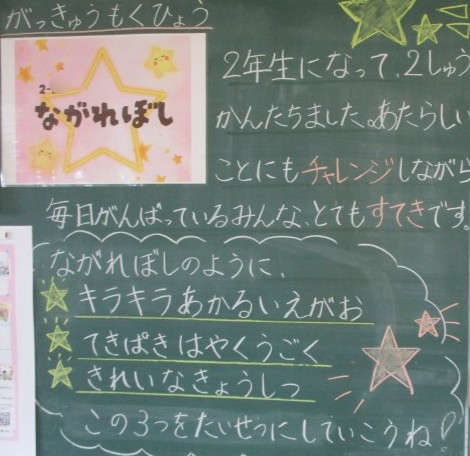 がっきゅうもくひょう
2-
ながれぼし
2年生になって、2しゅう
かんたちました。あたらしい
ことにもチャレンジしながら
毎日がんばっているみんな、とてもすてきです。
ながれぼしのように、
キラキラあかるいえがお
てきぱきはやくうごく
きれいなきょうしつ
この3つをたいせつにしていこうね!